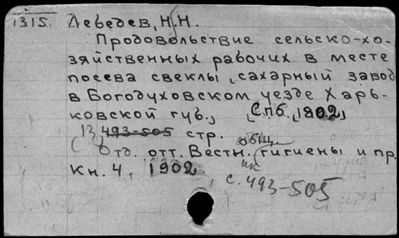 1315. Лебедев, Н.Н.
Продовольствие сельско-хо-
зяйственных рабочих в месте
посева свеклы, сахарный завод
в Богодуховском уезде Харь-
ковской губ., Спб., 1902,
13, 493-505 стр.
(Отд. отт. Вестн. общ. гигиены и пр.
Кн. 4, 1902
с. 493-505